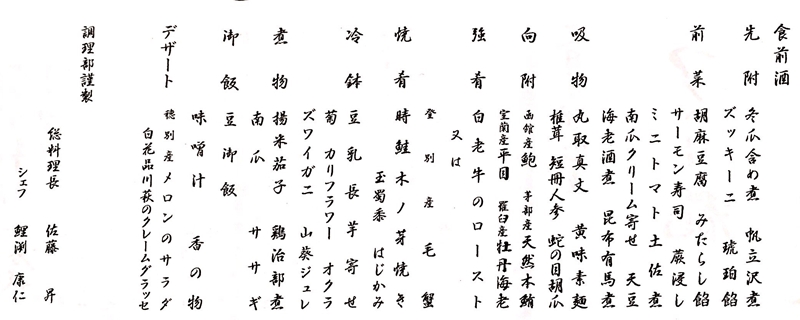 食前酒
先附 冬瓜含め煮 帆立沢煮
ズッキーニ 琥珀餡
前菜 胡麻豆腐 みたらし餡
サーモン寿司 蕨浸し
ミニトマト土佐煮
南瓜クリーム寄せ 天豆
海老酒煮 昆布有馬煮
吸物 丸取真丈 黄味素麺
椎茸 短冊人参 蛇の目胡瓜
向附 函館産鮑 茅部産天然本鮪
室蘭産平目 羅臼産牡丹海老
強肴 白老牛のロースト
又は
登別産毛蟹
焼肴 時鮭木ノ芽焼き
玉蜀黍 はじかみ
冷鉢 豆乳長芋寄せ
菊 カリフラワー オクラ
ズワイガニ 山葵ジュレ
煮物 揚米茄子 鶏治部煮
南瓜 ササギ
御飯 豆御飯
味噌汁 香の物
デザート 穂別産メロンのサラダ
白花品川萩のクレームグラッセ
調理部謹製
総料理長 佐藤 昇
シェフ 鯉渕 康仁